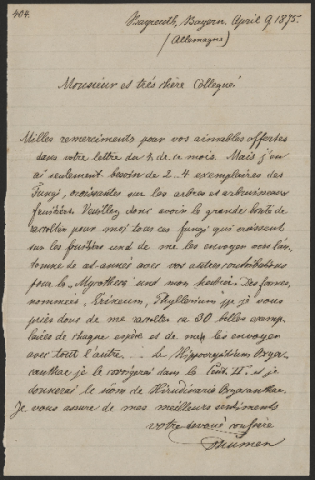 404.
Bayreuth, Bayern, April 9 1875.
(Allemagne)
Monsieur et très chère Collegue!
Milles remerciments pour vos aimables offertes
dans votre lettre du 4. de ce mois. Mais j'en
ai seulement besoin de 2–4 exemplaires des
Fungi, croissantes sur les arbres et arbrisseaux
fruitiers. Veuillez donc avoir la grande bonté de
récolter pour moi tous ces fungi qui croissent
sur les fruitiers und de me les envoyer vers l'au-
tomne de cet année avec vos autres contributions
pour la Mycotheca und mon herbier. Des
nommées, Xyleneum, Phyllerium je vous
prie donc de me récolter ca 30 belles exemp-
laires de chaque espèce et de me les envoyer
avec tout l'autre. — Le
je le corrigerai dans la Cent. II. et je
donnerai le nom de Hirudinaria
Je vous assure de mes meilleurs sentiments
votre dévoué confrère
Thümen